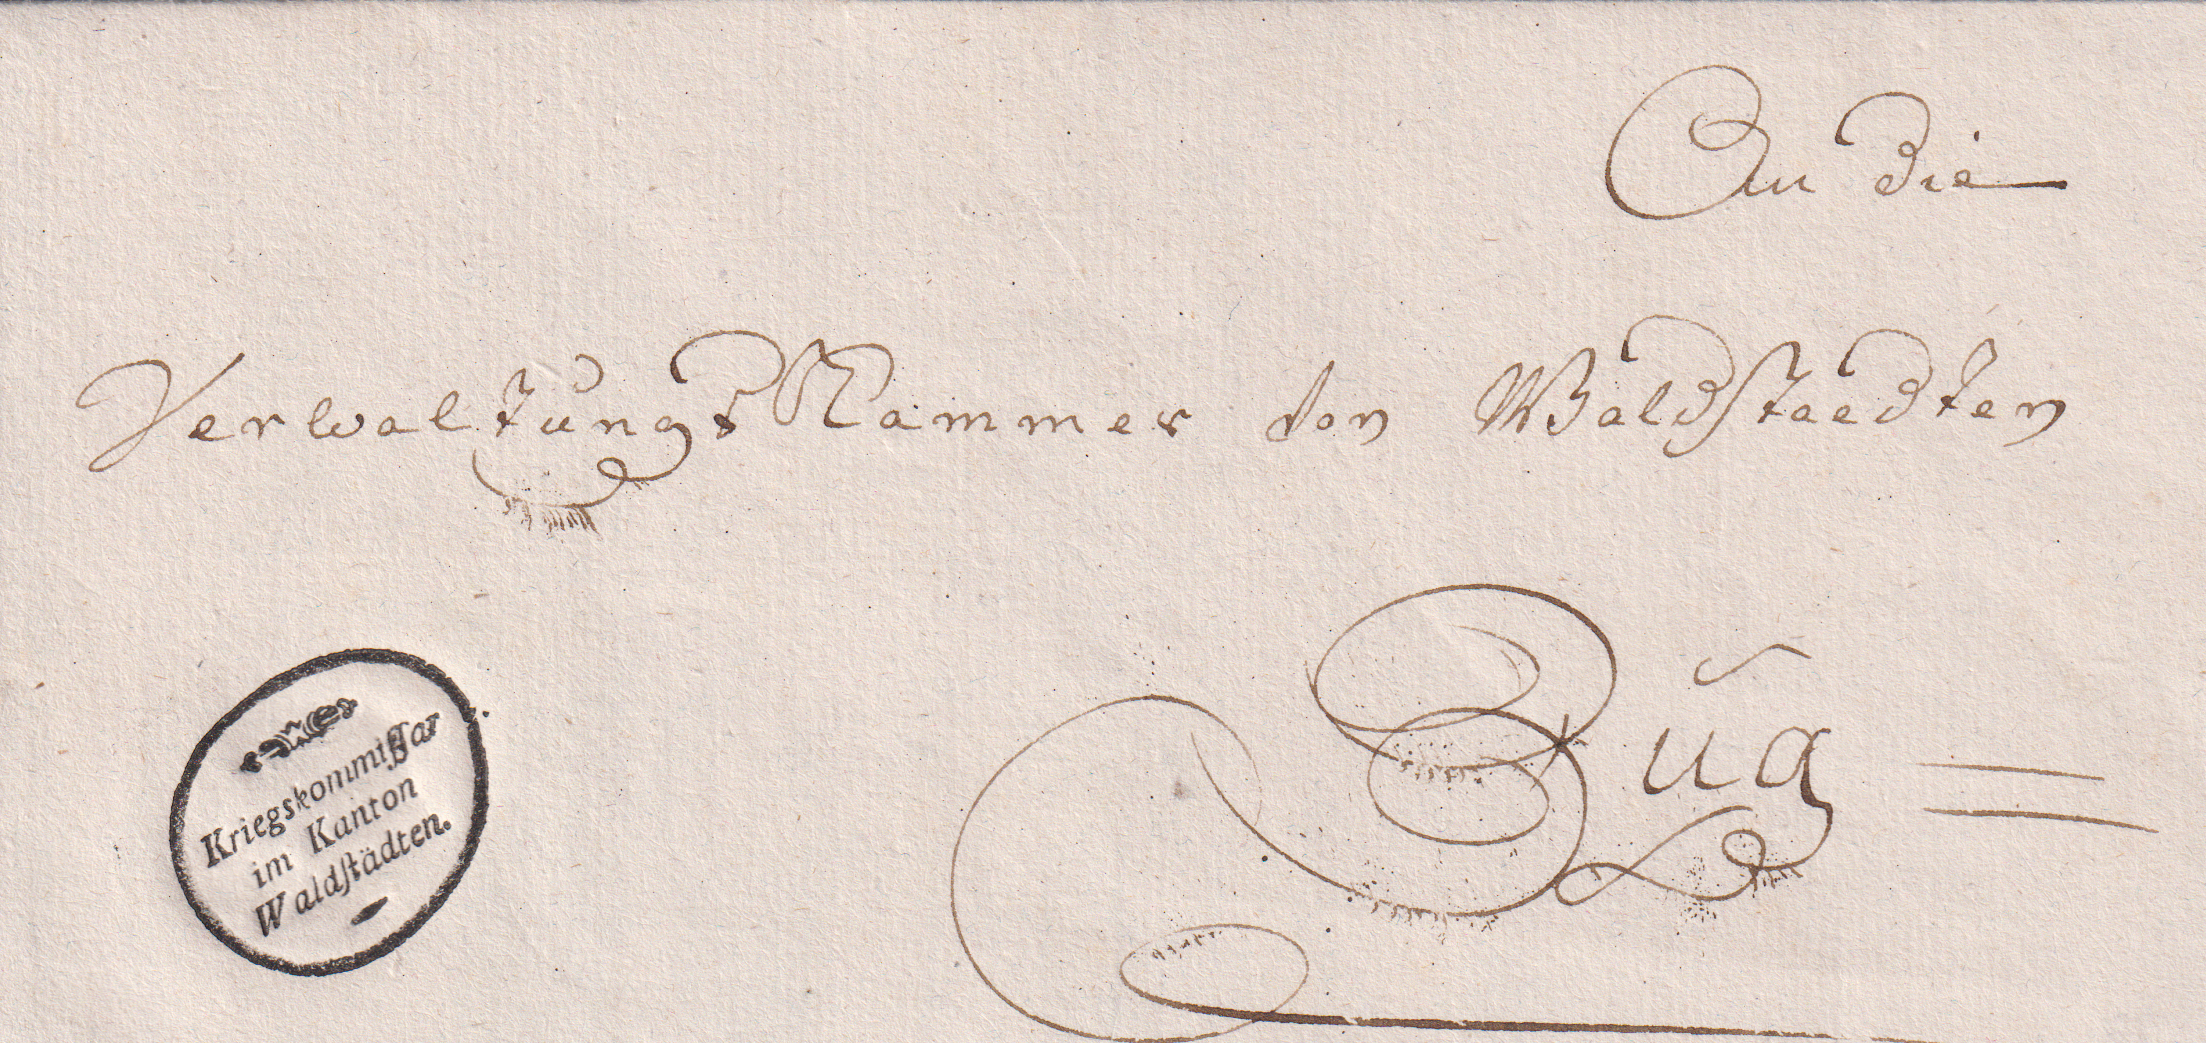 An die
VerwaltungsKammer von Waldstaedten
Zug =
Kriegskommiſſar
im Kanton
Waldſtädten.